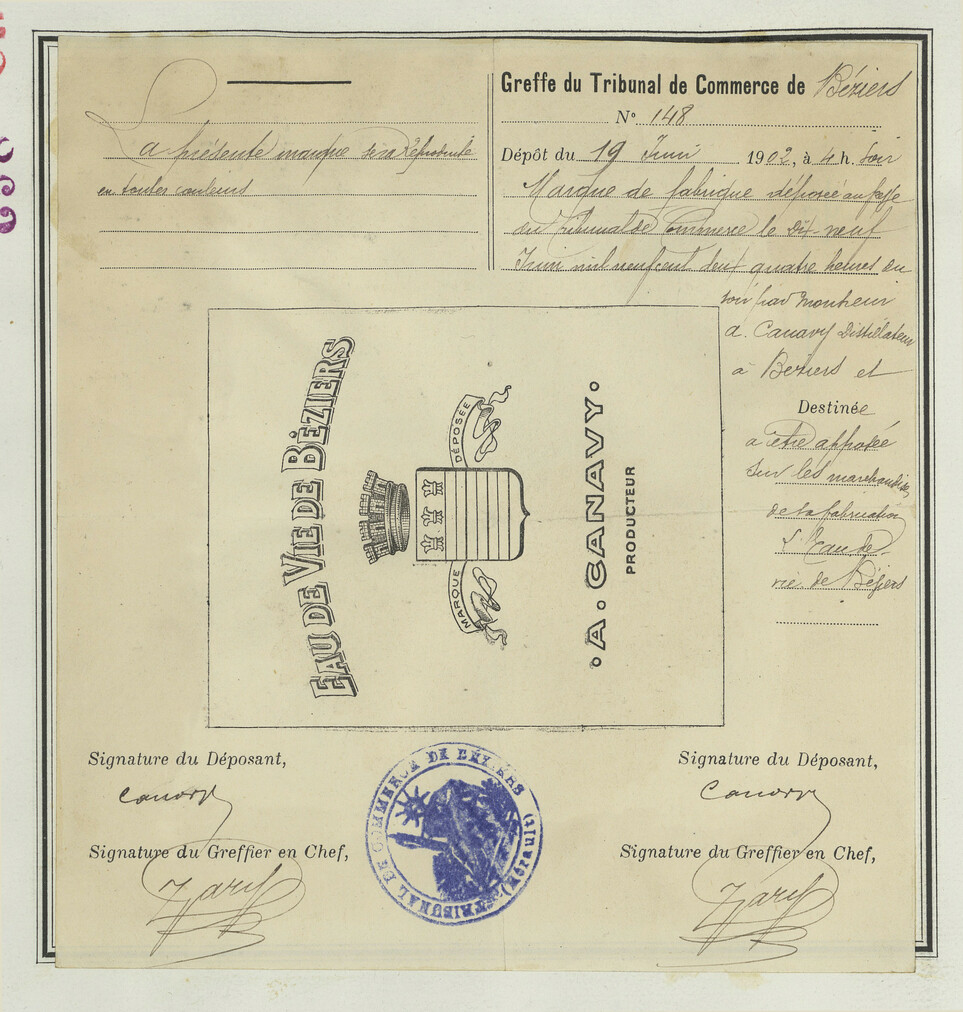 La présente marque sera Reproduite
en toutes couleurs
Greffe du Tribunal de Commerce de Béziers
N° 148
Dépôt du 19 Juin 1902, à 4 h. soir
Marque de fabrique déposée au greffe
du Tribunal de Commerce le Dix-neuf
Juin mil neuf cent deux quatre heures du
soir par Monsieur
A. Canavy Distillateur
à Béziers et
Destinée
a être apposée
sur les marchandises
de la fabrication
d'Eau de-
vie de Béziers
EAU DE VIE DE BÉZIERS
MARQUE DÉPOSÉE
A. CANAVY
PRODUCTEUR
Signature du Déposant,
Canavy
Signature du Greffier en Chef,
TRIBUNAL DE COMMERCE DE BÉZIERS (Hérault)
Signature du Déposant,
Canavy
Signature du Greffier en Chef,